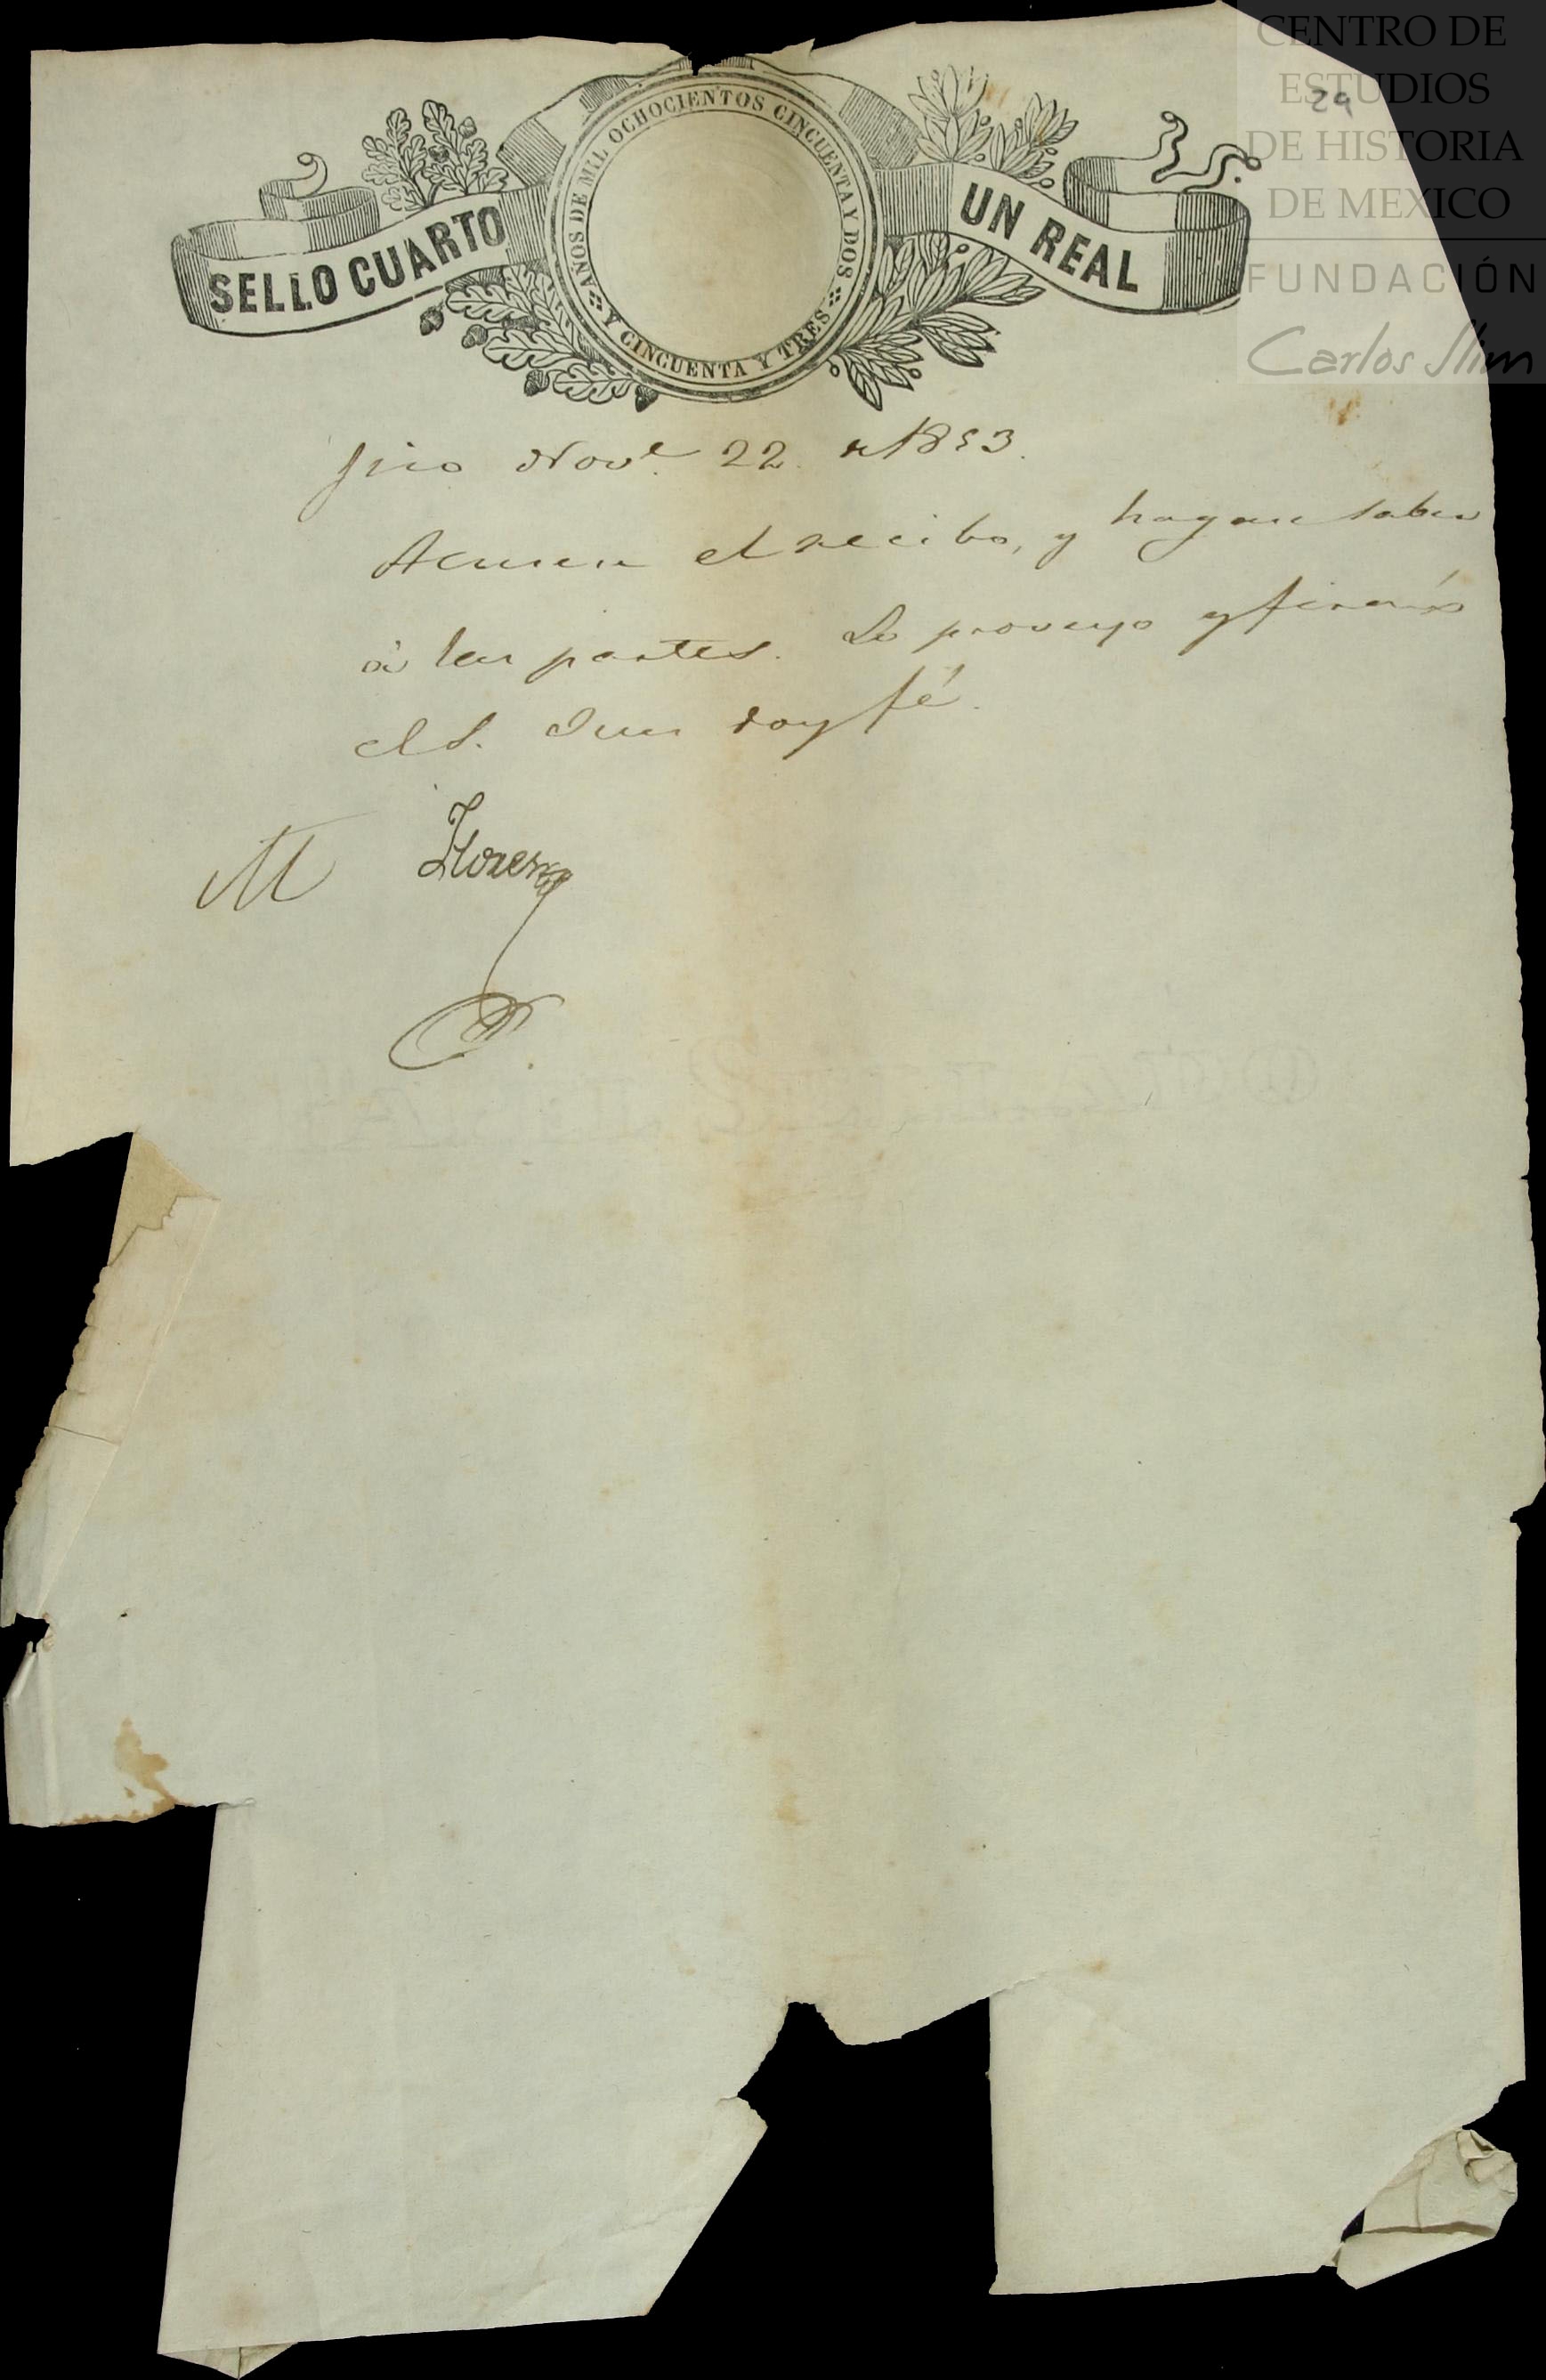 CENTRO DE
ESTUDIOS
DE HISTORIA
DE MEXICO
FUNDACIÓN
Carlos Slim
29
SELLO CUARTO
AÑOS DE MIL OCHOCIENTOS CINCUENTA Y DOS
Y CINCUENTA Y TRES
UN REAL
Nove. 22 de 1853.
Acusese el recibo, y hagase saber
á las partes. Lo proveyo y firmó
el S. Juez doy fé.
M Florez